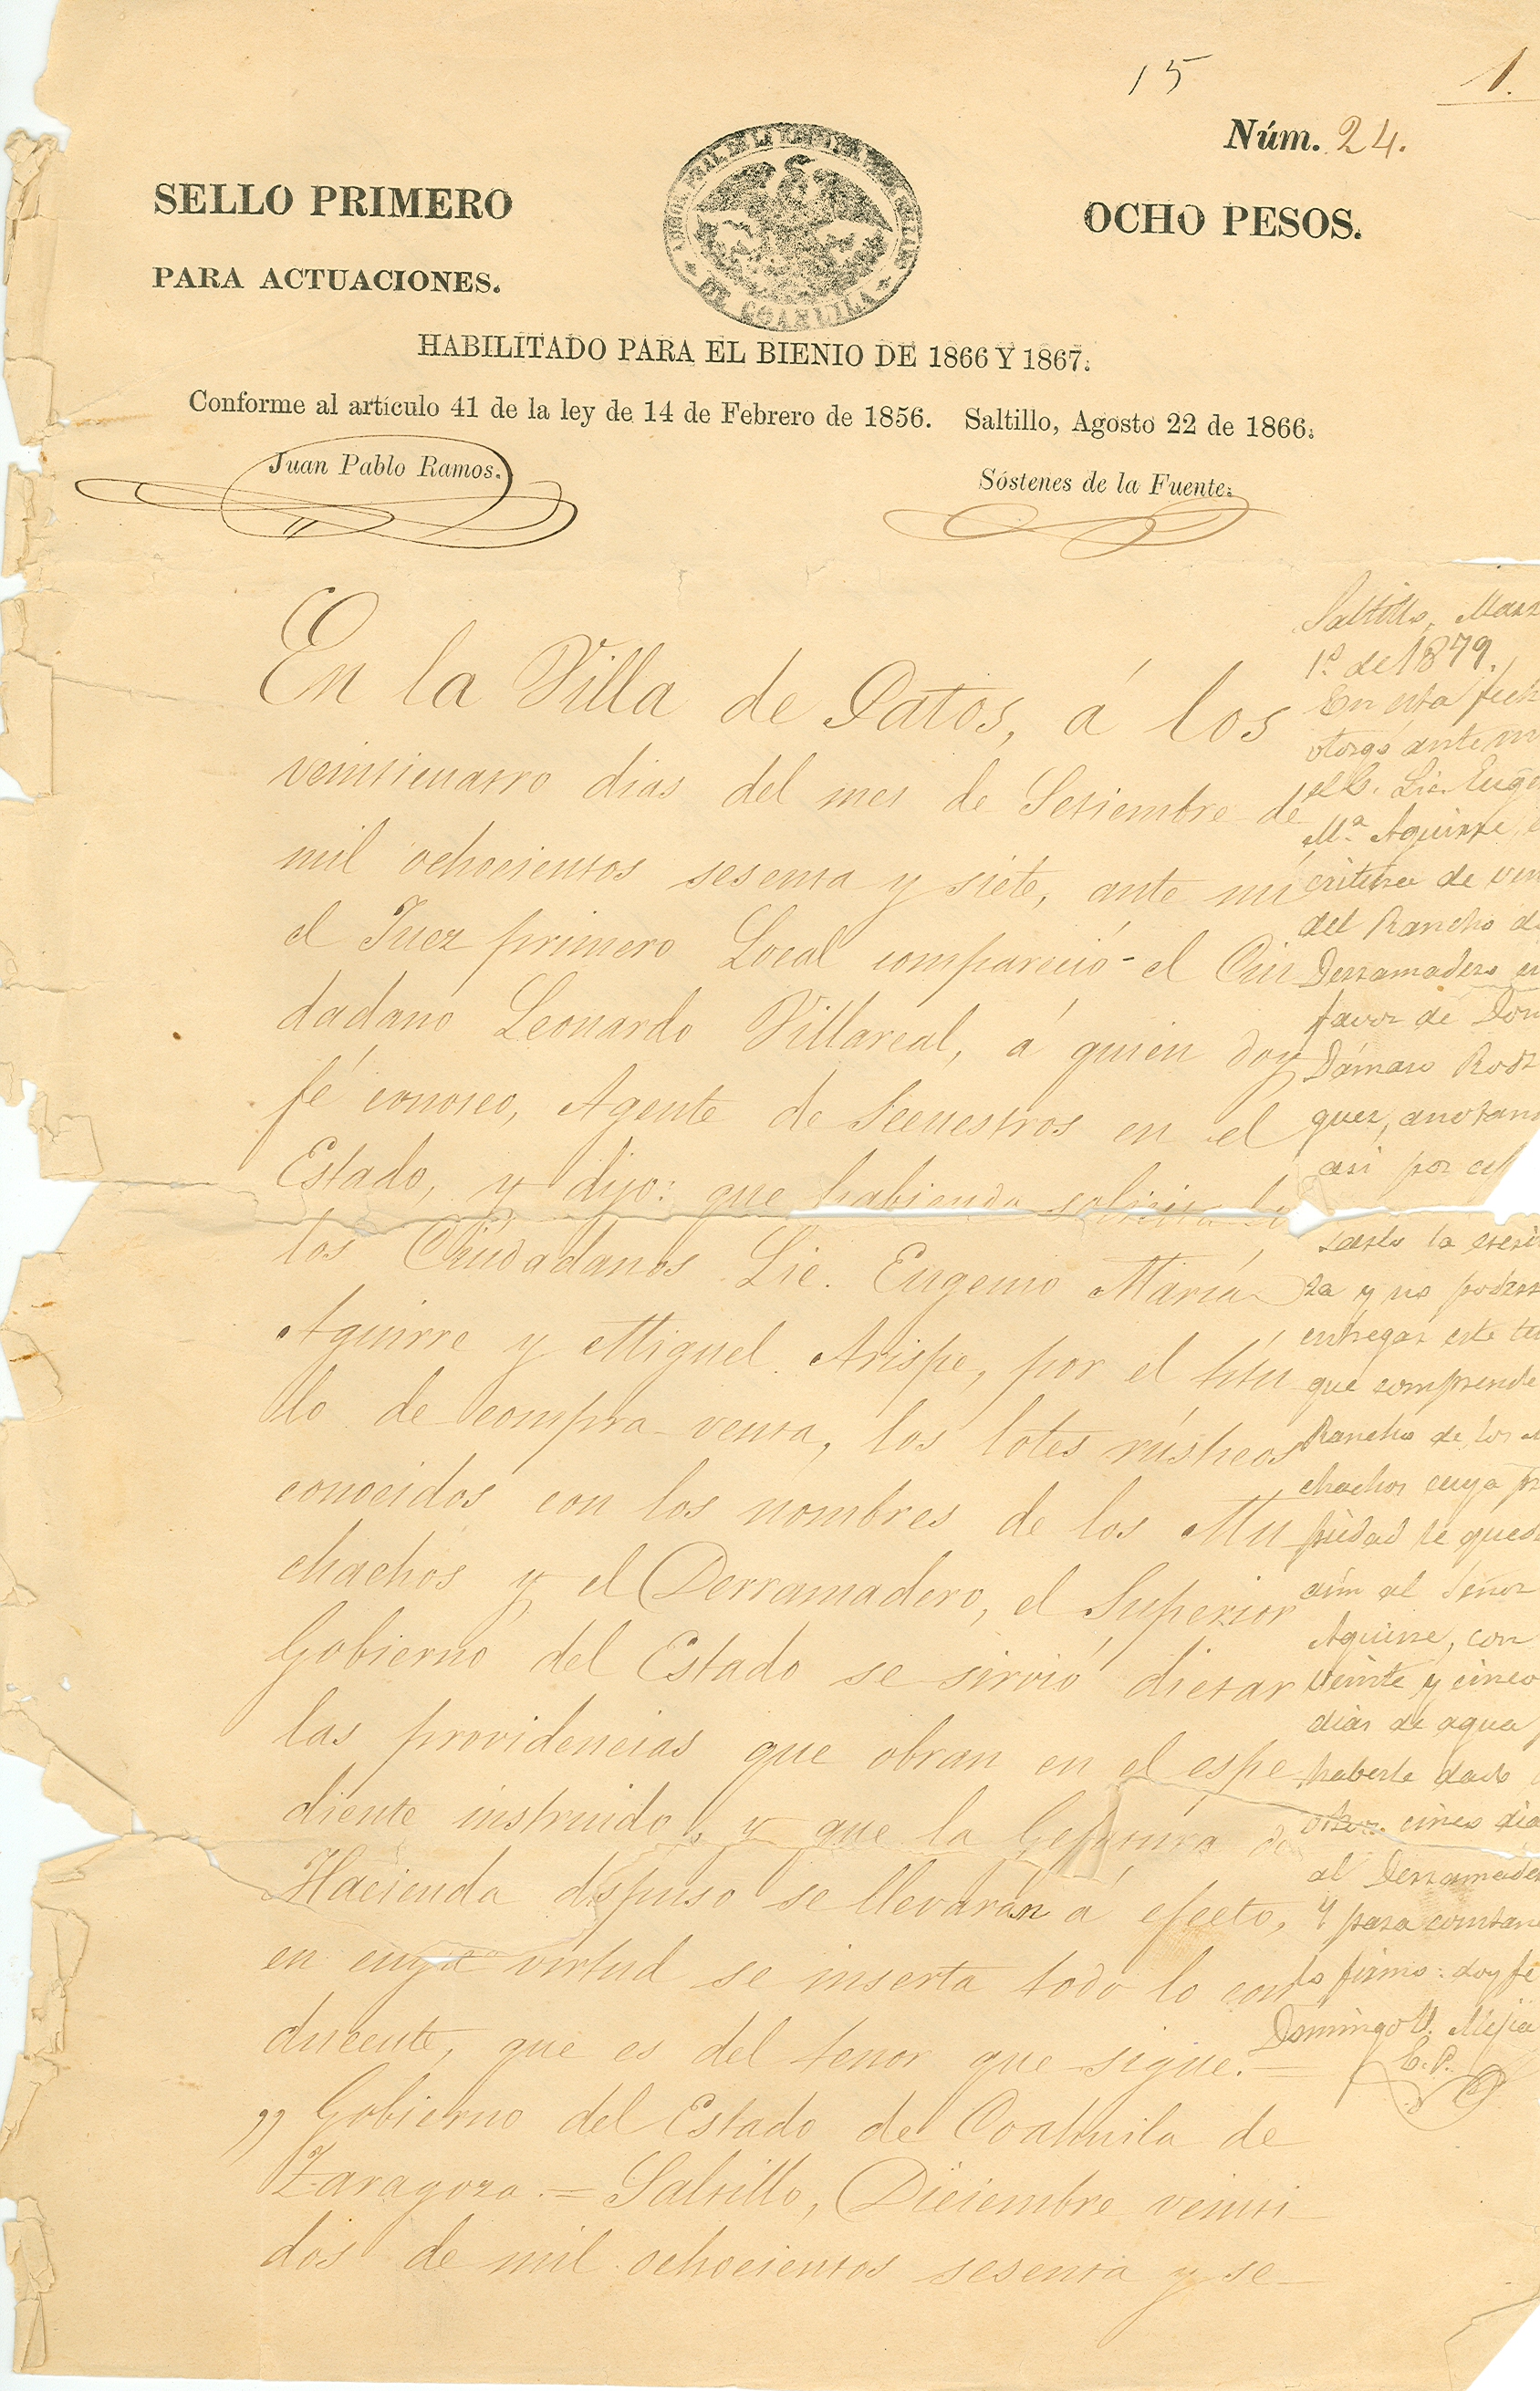 15
1.
Núm. 24.
SELLO PRIMERO
OCHO PESOS.
PARA ACTUACIONES.
DE COAHUILA
HABILITADO PARA EL BIENIO DE 1866 Y 1867.
Conforme al artículo 41 de la ley de 14 de Febrero de 1856. Saltillo, Agosto 22 de 1866.
Juan Pablo Ramos.
Sóstenes de la Fuente.
En la Villa de Patos, á los
veinticuatro dias del mes de Setiembre de
mil ochocientos sesenta y siete, ante mí
el Juez primero Local compareció el Ciu
dadano Leonardo Villareal, á quien doy
fé conosco, Agente de Secuestros en el
Estado, y dijo: que habiendo solicitado
los Ciudadanos Lic. Eugenio María
Aguirre y Miguel Arispe, por el títu
lo de compra-venta, los lotes rústicos
conocidos con los nombres de los Mu
chachos y el Derramadero, el Superior
Gobierno del Estado se sirvió dictar
las providencias que obran en el espe
diente instruido, y que la Gefatura de
Hacienda dispuso se llevarán á efecto,
en cuya virtud se inserta todo lo con
ducente, que es del tenor que sigue. =
" Gobierno del Estado de Coahuila de
Zaragoza. = Saltillo, Diciembre veinti
dos de mil ochocientos sesenta y se
Saltillo, Marz
1º de 1879.
En esta fech
otorgó ante m
el C. Lic. Euge
Mª Aguirre, e
critura de ven
del Rancho de
Derramadero en
favor de Don
Dámaso Rodr
guez, anotan
asi por
la escri
ra y no poders
entregar este
que comprende
Rancho de los
chachos cuya p
piedad le queda
aún al Señor
Aguirre, con
veinte y cinco
dias de agua
haberle dado
otros cinco dia
al Derramade
Y para constan
lo firmo: doy fé
Domingo V. Mejia
E. P.